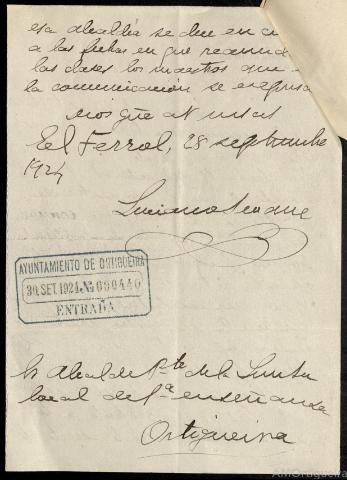 esa alcaldía se den en
a las fechas en que
las clases los maestros que
la comunicación se expresa
Dios gûe a V. m. as
El Ferrol, 28 septiembre
1924
Luciano Seoane
AYUNTAMIENTO DE ORTIGUEIRA
30. SET. 1924 № 000440
ENTRADA
Sr Alcalde Pte de la Junta
local de 1ª enseñanza
Ortigueira
AMOrtigueira